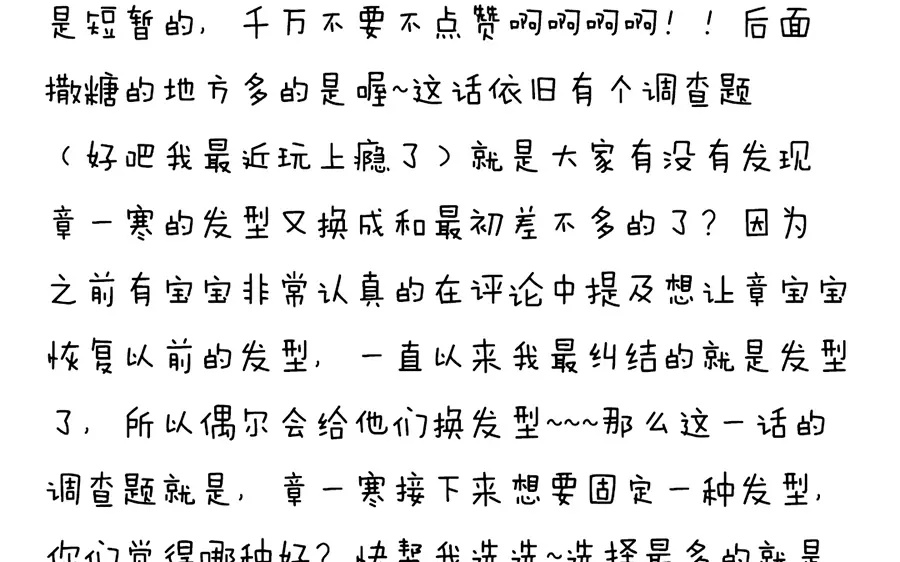 是短暂的，千万不要不点赞啊啊啊啊！！后面
撒糖的地方多的是喔~这话依旧有个调查题
（好吧我最近玩上瘾了）就是大家有没有发现
章一寒的发型又换成和最初差不多的了？因为
之前有宝宝非常认真的在评论中提及想让章宝宝
恢复以前的发型，一直以来我最纠结的就是发型
了，所以偶尔会给他们换发型~~~那么这一话的
调查题就是，章一寒接下来想要固定一种发型，
你们觉得哪种好？快帮我选选~选择最多的就是